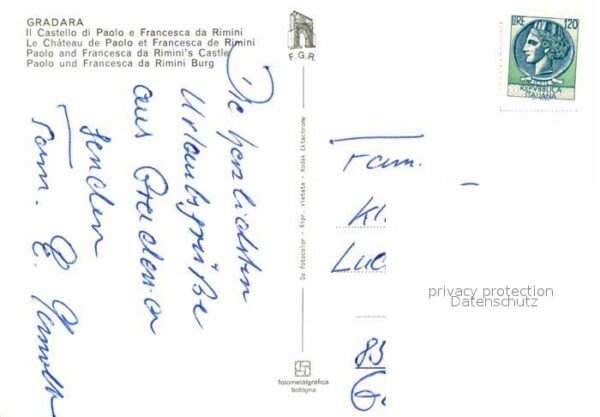 GRADARA
Il Castello di Paolo e Francesca da Rimini
Le Château de Paolo et Francesca de Rimini
Paolo and Francesca da Rimini's Castle
Paolo und Francesca da Rimini Burg
F.G.R.
LIRE 120
REPVBBLICA
ITALIANA
Die herzlichsten
Urlaubsgrüße
aus Gradara
senden
Fam. E.
Da fotocolor - Ripr. vietata - Kodak Ektachrome
fotometalgrafica
bologna
Fam.
Kl
Luc
85
G
privacy protection
Datenschutz